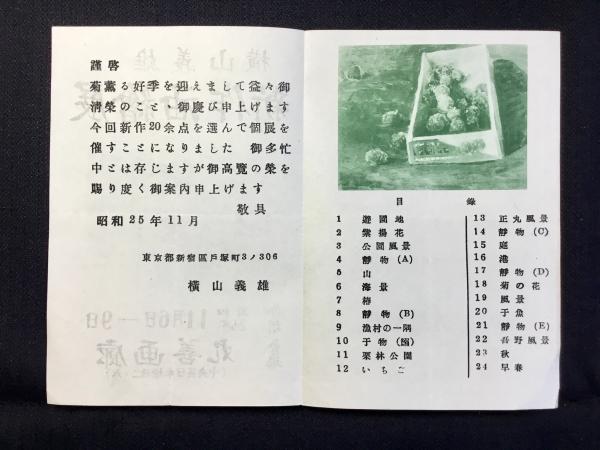 謹啓
菊薫る好季を迎えまして益々御
清榮のこと、御慶び申上げます
今回新作20余点を選んで個展を
催すことになりました 御多忙
中とは存じますが御高覽の榮を
賜り度く御案内申上げます
敬具
昭和25年11月
東京都新宿區戸塚町3ノ306
横山義雄
目錄
1 遊園地
2 紫揚花
3 公園風景
4 靜物(A)
5 山
6 海景
7 椿
8 靜物(B)
9 漁村の一隅
10 干物(鰯)
11 栗林公園
12 いちご
13 正丸風景
14 靜物(C)
15 庭
16 港
17 靜物(D)
18 菊の花
19 風景
20 干魚
21 靜物(E)
22 吾野風景
23 秋
24 早春